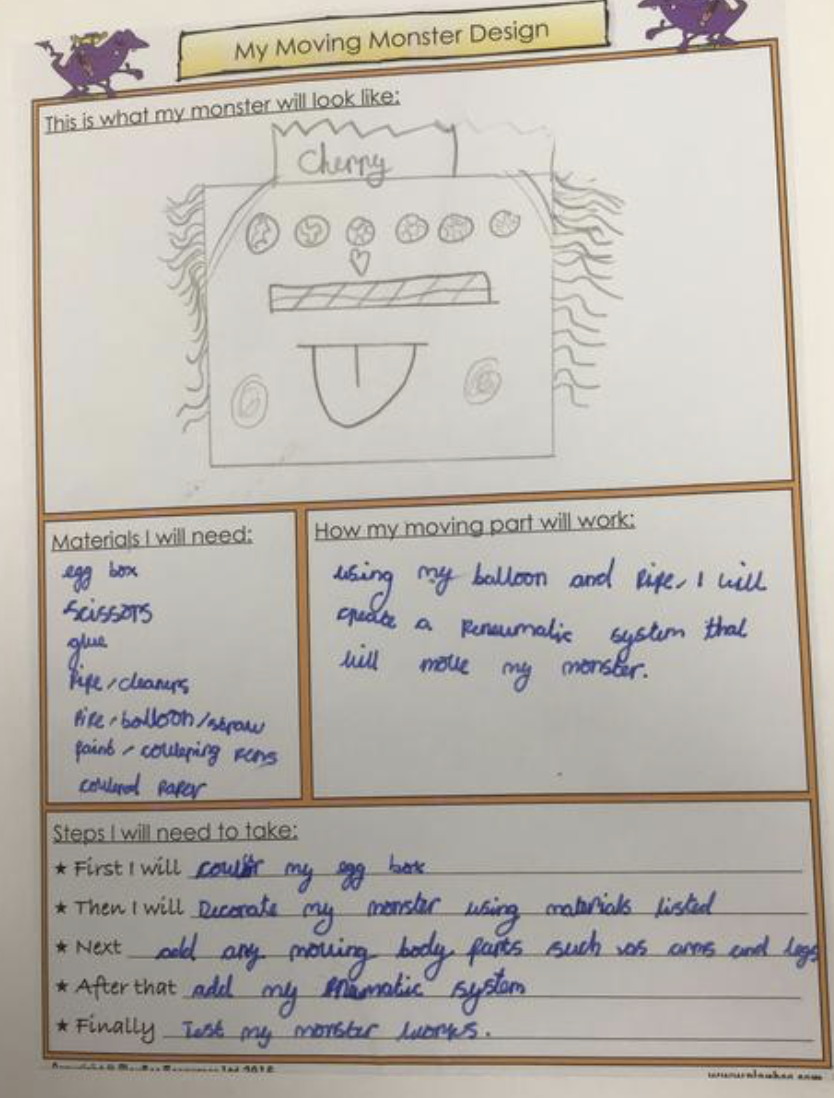 My Moving Monster Design
This is what my monster will look like:
Cherry
Materials I will need:
egg box
scissors
glue
Pipe / cleaners
Pipe / balloon / straw
paint / coulering pens
coulered paper
How my moving part will work:
using my balloon and Pipe, I will
create a Peneumatic system that
will move my monster.
Steps I will need to take:
★ First I will my egg box
★ Then I will Decorate my monster using materials listed
★ Next add any moving body parts such as arms and legs
★ After that add my system
★ Finally Test my monster works.